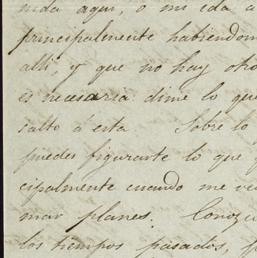 nida aqui, o mi ida a
principalmente habiendom
alli, y que no hay otro
es necesaria dime lo que
salto á esta Sobre lo
puedes figurarte lo que
cipalmente cuando me ve
mar planes.
los tiempos pasados,